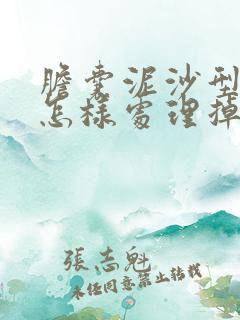 膽囊泥沙型
怎樣處理掉
張志魁
未經同意禁止轉載